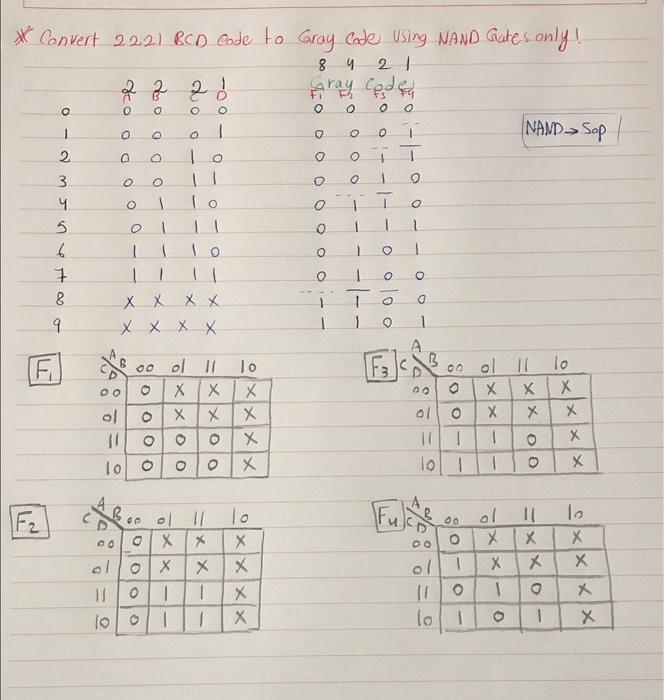 * Convert 2221 BCD Code to Gray Code Using NAND Gates only!
8 4 2 1
2 2 2 1 Gray Code
A B C D F1 F2 F3 F4
0 0 0 0 0 0 0 0 0
1 0 0 0 1 0 0 0 1 NAND → Sop
2 0 0 1 0 0 0 1 1
3 0 0 1 1 0 0 1 0
4 0 1 1 0 0 1 1 0
5 0 1 1 1 0 1 1 1
6 1 1 1 0 0 1 0 1
7 1 1 1 1 0 1 0 0
8 X X X X 1 1 0 0
9 X X X X 1 1 0 1
F1 AB CD 00 01 11 10
00 0 X X X
01 0 X X X
11 0 0 0 X
10 0 0 0 X
F3 AB CD 00 01 11 10
00 0 X X X
01 0 X X X
11 1 1 0 X
10 1 1 0 X
F2 AB CD 00 01 11 10
00 0 X X X
01 0 X X X
11 0 1 1 X
10 0 1 1 X
F4 AB CD 00 01 11 10
00 0 X X X
01 1 X X X
11 0 1 0 X
10 1 0 1 X